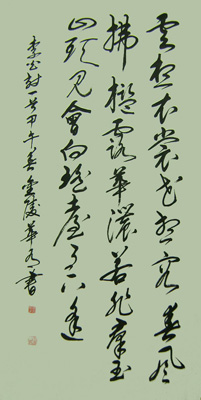 雲想衣裳花想容春風
拂檻露華濃若非羣玉
山頭見會向瑤臺月下逢
李白詩一首甲午春金陵華書